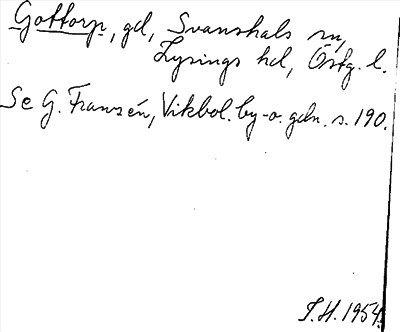 Gottorp, gd, Svanshals sn,
Lysings hd, Östg. l.
Se G. Franzén, Vikbol. by- o. gdn. s. 190.
I.H. 1954.